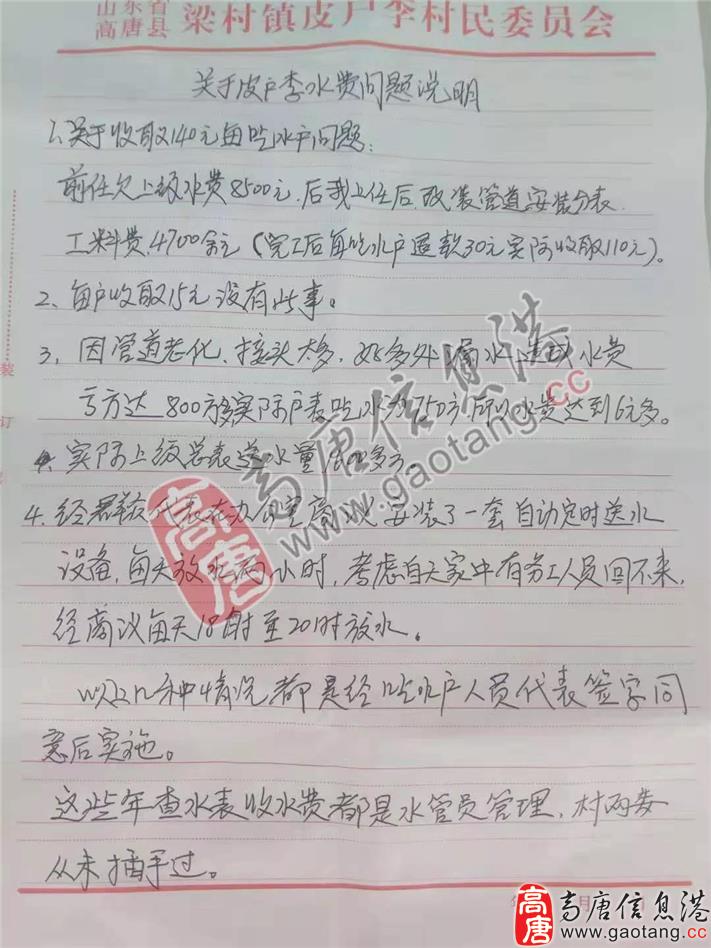 山东省
高唐县 梁村镇皮户李村民委员会
关于皮户李水费问题说明
1、关于收取140元每吃水户问题:
前任欠上级水费8500元,后我上任后,改装管道安装分表
工料费,4700余元(完工后每吃水户退款30元实际收取110元)。
2、每户收取15元没有此事。
3、因管道老化、接头太多,好多处漏水造成水费
亏方达800方多实际户表吃水为750方所以水费达到6元多。
实际上级总表送水量1600多方
4、经群众代表在办公室商议安装了一套自动定时送水
设备,每天放水两小时,考虑白天家中有务工人员回不来,
经商议每天18时至20时放水。
以上几种情况都是经吃水户人员代表签字同
意后实施。
这些年查水表收水费都是水管员管理,村两委
从未插手过。
装
订
年 月
高唐信息港
www.gaotang.cc
高唐
高唐 高唐信息港
www.gaotang.cc